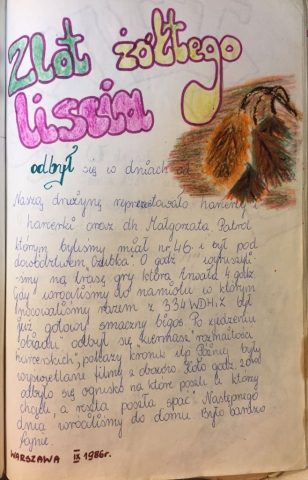 Zlot żółtego
liścia
odbył się w dniach od
Naszą drużynę reprezentowało harcerzy i
harcerki oraz dh Małgorzata Patrol
którym byliśmy miał nr 46 i był pod
dowództwem O godz wyruszyli-
śmy na trasę gry która trwała 4 godz.
Gdy wróciliśmy do namiotu w którym
nocowaliśmy razem z 334 WDH i Z był
już gotowy smaczny bigos. Po zjedzeniu
obiadu odbył się "kiermasz rozmaitości
harcerskich", pokazy kronik itp. Później były
wyświetlane filmy z obozów. Koło godz.
odbyło się ognisko na które poszli ci którzy
chcieli, a reszta poszła spać. Następnego
dnia wróciliśmy do domu. Było bardzo
fajnie.
WARSZAWA IX 1986r.